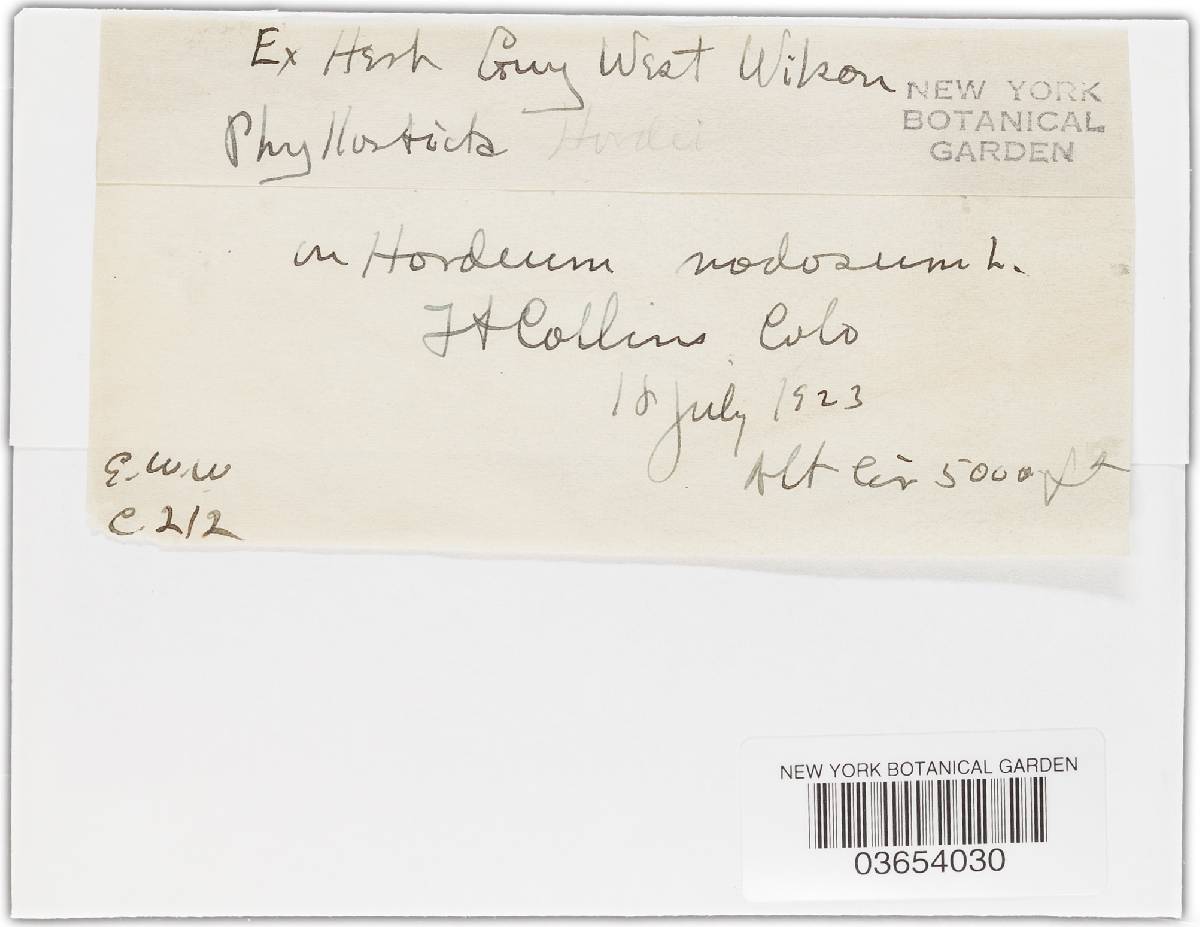 Ex Herb Guy West Wilson
NEW YORK
BOTANICAL
GARDEN
Phyllosticta Hordei
on Hordeum nodosum L.
Ft Collins Colo
18 July 1923
Alt Cir 5000 ft
G.W.W
C 212
NEW YORK BOTANICAL GARDEN
03654030